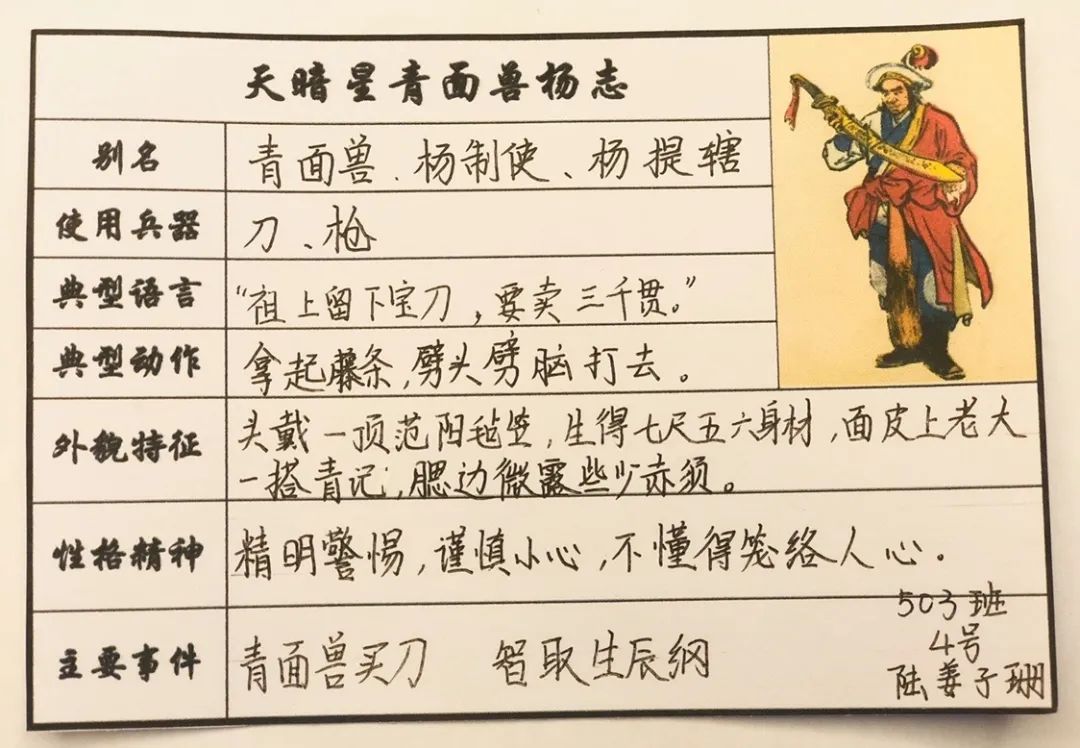 天暗星青面兽杨志
别名 青面兽、杨制使、杨提辖
使用兵器 刀、枪
典型语言 “祖上留下宝刀，要卖三千贯。”
典型动作 拿起藤条，劈头劈脑打去。
外貌特征 头戴一顶范阳毡笠，生得七尺五六身材，面皮上老大
一搭青记，腮边微露些少赤须。
性格精神 精明警惕，谨慎小心，不懂得笼络人心。
主要事件 青面兽买刀 智取生辰纲
503班
4号
陆姜子珊